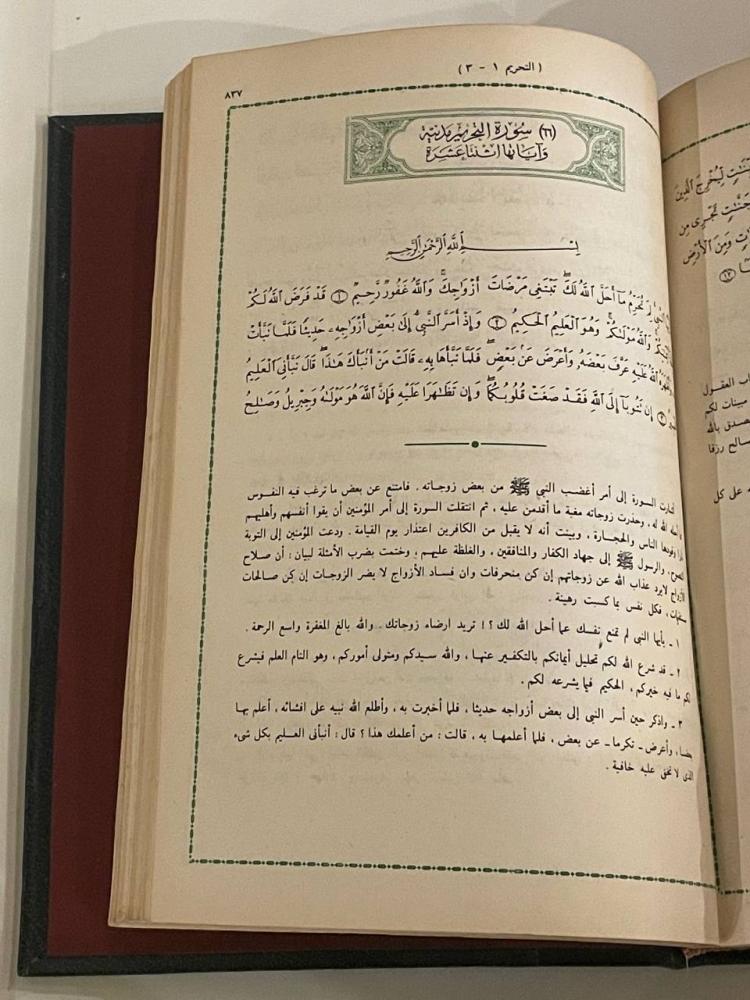 ( التحريم ١ - ٣ )
٨٣٧
(٦٦) سُورَة التحريم مدنية
وَآياتها اثنتا عَشرَة
بِسْمِ اللَّهِ الرَّحْمَٰنِ الرَّحِيمِ
تُحَرِّمُ مَا أَحَلَّ اللَّهُ لَكَ تَبْتَغِي مَرْضَاتَ أَزْوَاجِكَ وَاللَّهُ غَفُورٌ رَّحِيمٌ ① قَدْ فَرَضَ اللَّهُ لَكُمْ
وَاللَّهُ مَوْلَاكُمْ وَهُوَ الْعَلِيمُ الْحَكِيمُ ② وَإِذْ أَسَرَّ النَّبِيُّ إِلَىٰ بَعْضِ أَزْوَاجِهِ حَدِيثًا فَلَمَّا نَبَّأَتْ
اللَّهُ عَلَيْهِ عَرَّفَ بَعْضَهُ وَأَعْرَضَ عَنْ بَعْضٍ فَلَمَّا نَبَّأَهَا بِهِ قَالَتْ مَنْ أَنْبَأَكَ هَٰذَا قَالَ نَبَّأَنِيَ الْعَلِيمُ
③ إِن تَتُوبَا إِلَى اللَّهِ فَقَدْ صَغَتْ قُلُوبُكُمَا وَإِن تَظَاهَرَا عَلَيْهِ فَإِنَّ اللَّهَ هُوَ مَوْلَاهُ وَجِبْرِيلُ وَصَالِحُ
أشارت السورة إلى أمر أغضب النبي ﷺ من بعض زوجاته . فامتنع عن بعض ما ترغب فيه النفوس
أحله الله له ، وحذرت زوجاته مغبة ما أقدمن عليه ، ثم انتقلت السورة إلى أمر المؤمنين أن يقوا أنفسهم وأهليهم
نارا وقودها الناس والحجارة ، وبينت أنه لا يقبل من الكافرين اعتذار يوم القيامة . ودعت المؤمنين إلى التوبة
النصوح ، والرسول ﷺ إلى جهاد الكفار والمنافقين ، والغلظة عليهم ، وختمت بضرب الأمثلة لبيان : أن صلاح
الأزواج لايرد عذاب الله عن زوجاتهم إن كن منحرفات وان فساد الأزواج لا يضر الزوجات إن كن صالحات
مستقيمات ، فكل نفس بما كسبت رهينة .
١ ـ يأيها النبي لم تمنع نفسك عما أحل الله لك ؟! تريد ارضاء زوجاتك . والله بالغ المغفرة واسع الرحمة .
٢ ـ قد شرع الله لكم تحليل أيمانكم بالتكفير عنها ، والله سيدكم ومتولى أموركم ، وهو التام العلم فيشرع
لكم ما فيه خيركم ، الحكيم فيما يشرعه لكم .
٣ ـ واذكر حين أسر النبى إلى بعض أزواجه حديثا ، فلما أخبرت به ، وأطلع الله نبيه على افشائه ، أعلم بها
بعضا ، وأعرض ـ تكرما ـ عن بعض ، فلما أعلمها به ، قالت : من أعلمك هذا ؟ قال : أنبأنى العليم بكل شىء
الذى لا تخفى عليه خافية .
جَنَّاتٍ
لِيُخْرِجَ الَّذِينَ
جَنَّاتٍ تَجْرِي مِن
وَمِنَ الْأَرْضِ
العقول
مبينات لكم
يصدق بالله
صالح رزقا
على كل